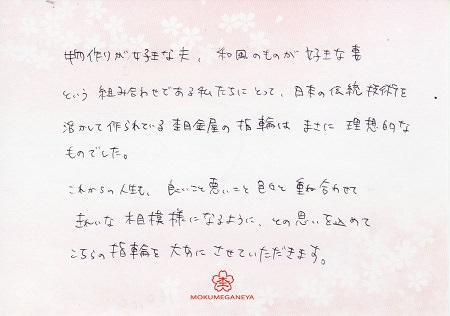 物作りが好きな夫、和風のものが好きな妻
という組み合わせである私たちにとって、日本の伝統技術を
活かして作られている杢目金屋の指輪は まさに 理想的な
ものでした。
これからの人生も、良いこと悪いこと 色々と 重ね合わせて
きれいな 木目模様になるように、との思いを込めて
こちらの指輪を大切に させていただきます。
MOKUMEGANEYA